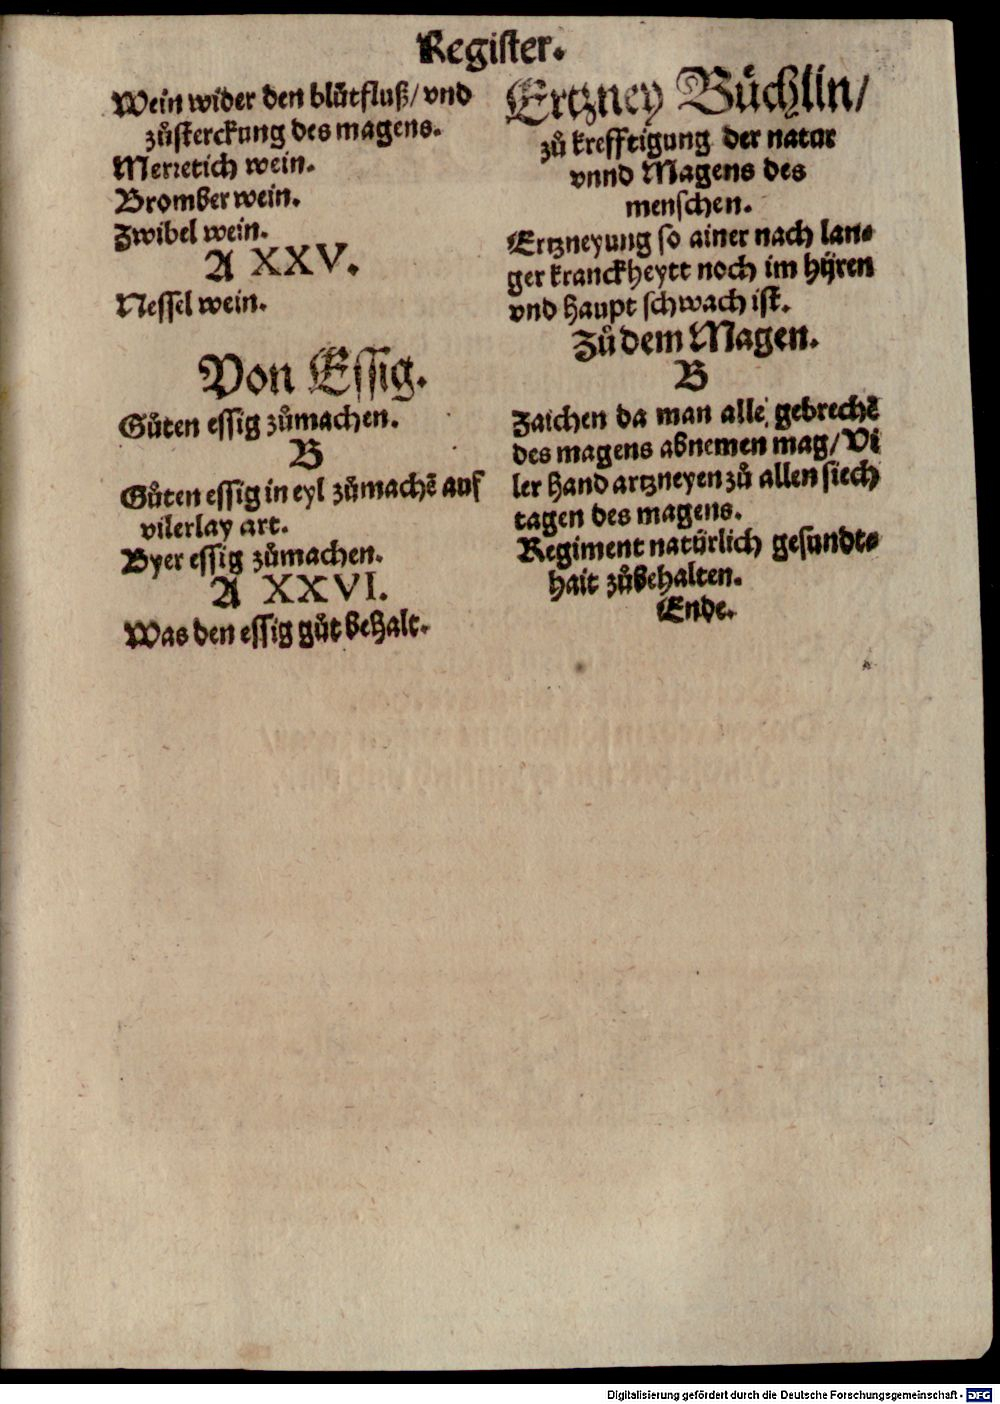 Register.
Wein wider den blůtfluß/ vnd
zůsterckung des magens.
Merretich wein.
Bromber wein.
Zwibel wein.
A XXV.
Nessel wein.
Von Essig.
Gůten essig zůmachen.
B
Gůten essig in eyl zůmachẽ auf
vilerlay art.
Byer essig zůmachen.
A XXVI.
Was den essig gůt behalt.
Ertzney Büchlin/
zů krefftigung der natur
vnnd Magens des
menschen.
Ertzneyung so ainer nach lan⸗
ger kranckheytt noch im hyren
vnd haupt schwach ist.
Zů dem Magen.
B
Zaichen da man alle gebrechẽ
des magens abnemen mag/ Vi
ler hand artzneyen zů allen siech
tagen des magens.
Regiment natürlich gesundt⸗
hait zůbehalten.
Ende.
Digitalisierung gefördert durch die Deutsche Forschungsgemeinschaft - DFG